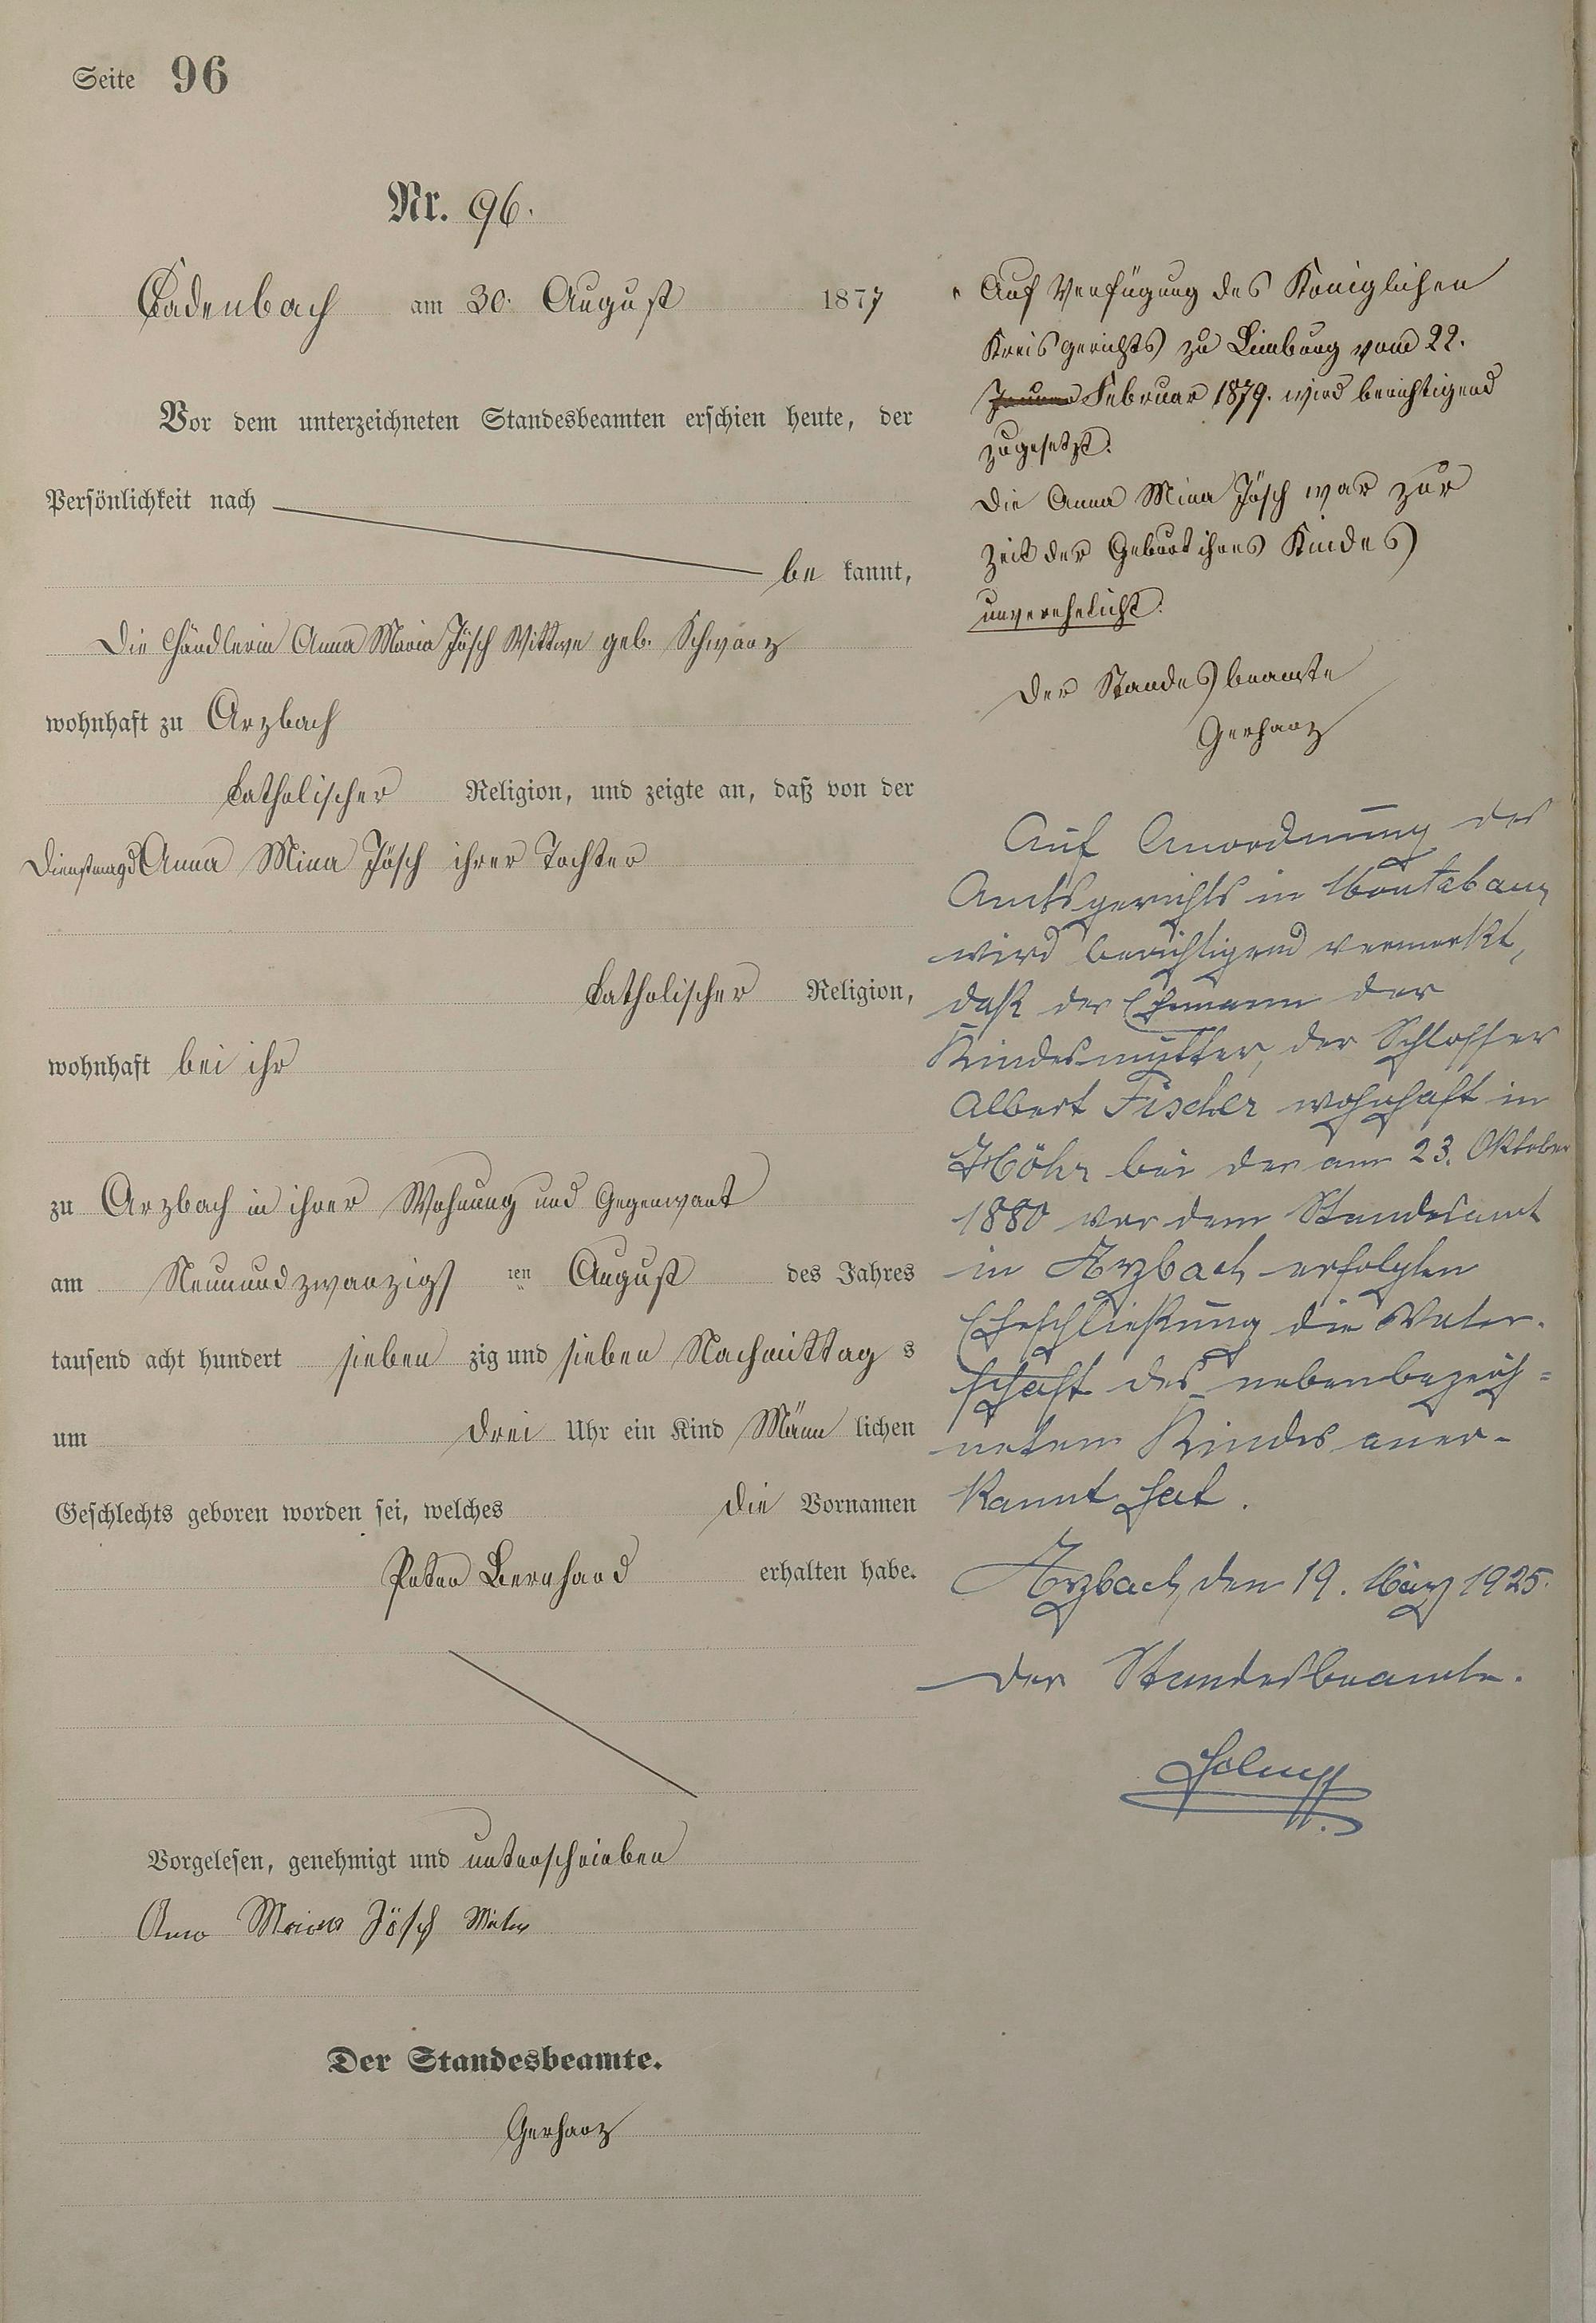 Seite 96
Nr. 96.
Cadenbach am 30. August 1877
Vor dem unterzeichneten Standesbeamten erschien heute, der
Persönlichkeit nach
be kannt,
Die Händlerin Anna Maria Jösch Wittwe geb. Schwarz
wohnhaft zu Arzbach
katholischer Religion, und zeigte an, daß von der
Dienstmagd Anna Mina Jösch ihrer Tochter
katholischer Religion,
wohnhaft bei ihr
zu Arzbach in ihrer Wohnung und Gegenwart
am Neunundzwanzigs ten August des Jahres
tausend acht hundert sieben zig und sieben Nachmittag s
um drei Uhr ein Kind Männ lichen
Geschlechts geboren worden sei, welches die Vornamen
Peter Bernhard erhalten habe.
Vorgelesen, genehmigt und unterschrieben
Jösch
Der Standesbeamte.
Gerharz
Auf Verfügung des Königlichen
Kreisgerichts zu Limburg vom 22.
Februar 1879. wird berichtigend
zugesetzt.
Die Anna Mina Jösch war zur
Zeit der Geburt ihres Kindes
unverehelicht.
Der Standesbeamte
Gerharz
Auf Anordnung des
Amtsgerichts in Montabaur
wird berichtigend vermerkt,
daß der Ehemann der
Kindesmutter, der Schlosser
Albert Fischer wohnhaft in
Höhr bei der am 23. Oktober
1880 vor dem Standesamt
in Arzbach erfolgten
Eheschließung die Vater-
schaft des nebenbezeich=
neten Kindes aner-
kannt hat.
Arzbach, den 19. März 1925.
Der Standesbeamte.